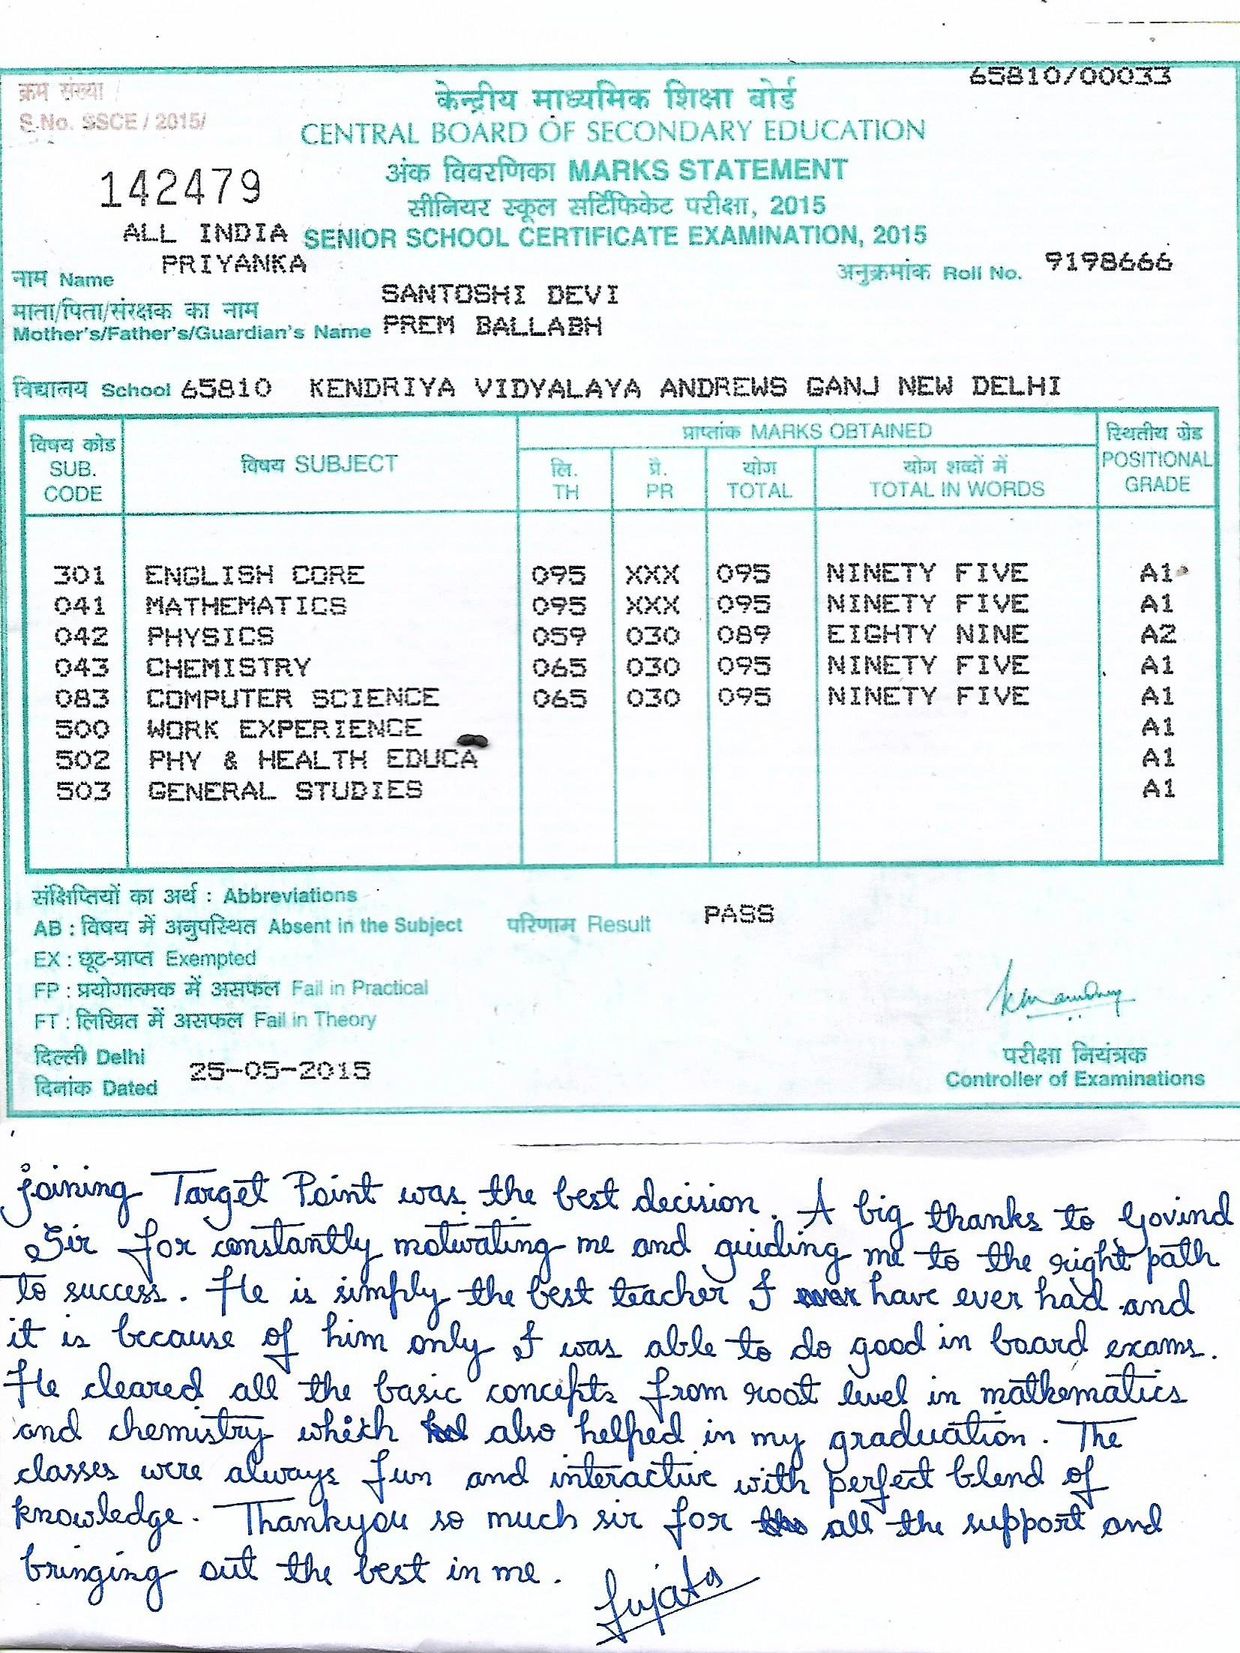 65810/00033
क्रम संख्या
S.No. SSCE / 2015/
केन्द्रीय माध्यमिक शिक्षा बोर्ड
CENTRAL BOARD OF SECONDARY EDUCATION
142479
अंक विवरणिका MARKS STATEMENT
सीनियर स्कूल सर्टिफिकेट परीक्षा, 2015
ALL INDIA SENIOR SCHOOL CERTIFICATE EXAMINATION, 2015
नाम Name PRIYANKA अनुक्रमांक Roll No. 9198666
माता/पिता/संरक्षक का नाम SANTOSHI DEVI
Mother's/Father's/Guardian's Name PREM BALLABH
विद्यालय School 65810 KENDRIYA VIDYALAYA ANDREWS GANJ NEW DELHI
विषय कोड SUB. CODE विषय SUBJECT प्राप्तांक MARKS OBTAINED स्थितीय ग्रेड POSITIONAL GRADE
लि. TH प्रै. PR योग TOTAL योग शब्दों में TOTAL IN WORDS
301 ENGLISH CORE 095 XXX 095 NINETY FIVE A1
041 MATHEMATICS 095 XXX 095 NINETY FIVE A1
042 PHYSICS 059 030 089 EIGHTY NINE A2
043 CHEMISTRY 065 030 095 NINETY FIVE A1
083 COMPUTER SCIENCE 065 030 095 NINETY FIVE A1
500 WORK EXPERIENCE A1
502 PHY & HEALTH EDUCA A1
503 GENERAL STUDIES A1
संक्षिप्तियों का अर्थ : Abbreviations
AB : विषय में अनुपस्थित Absent in the Subject परिणाम Result PASS
EX : छूट-प्राप्त Exempted
FP : प्रयोगात्मक में असफल Fail in Practical
FT : लिखित में असफल Fail in Theory
दिल्ली Delhi
दिनांक Dated 25-05-2015
परीक्षा नियंत्रक
Controller of Examinations
Joining Target Point was the best decision. A big thanks to Govind
Sir for constantly motivating me and guiding me to the right path
to success. He is simply the best teacher I have ever had and
it is because of him only I was able to do good in board exams.
He cleared all the basic concepts from root level in mathematics
and chemistry which also helped in my graduation. The
classes were always fun and interactive with perfect blend of
knowledge. Thankyou so much sir for all the support and
bringing out the best in me.